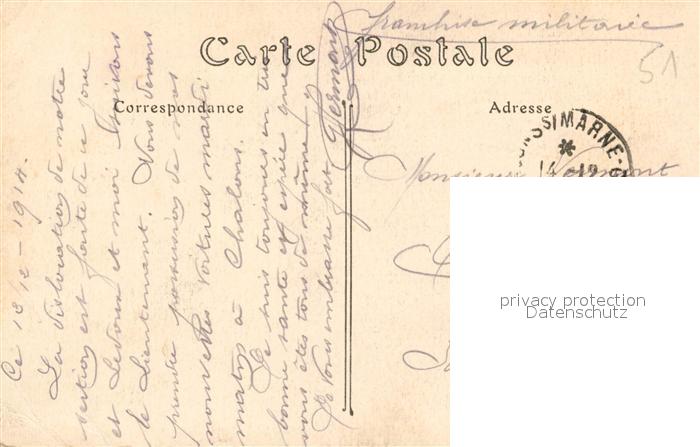 Franchise militaire
51
Carte Postale
Correspondance
Adresse
SS/MARNE
14
Monsieur
privacy protection
Datenschutz
Ce 13-12-1914.
La dislocation de notre
section est faite de ce jour
et Ledoux et moi suivons
le Lieutenant. Vous devons
prendre possession de nos
nouvelles voitures mardi
matin à Chalons.
Je suis toujours en
bonne santé et espère que
vous êtes tous de même.
Je vous embrasse fort
Germont